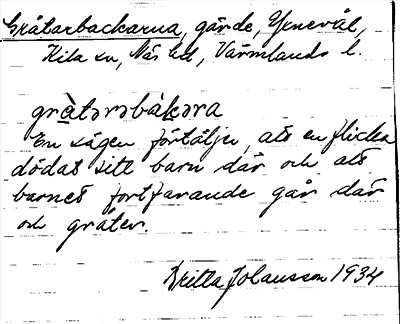 Gråtarbackarna, gärde, Yenevål,
Kila sn, Näs hd, Värmlands l.
gràtərəbàkəra
En sägen förtäljer, att en flicka
dödat sitt barn där och att
barnet fortfarande går där
och gråter.
Britta Johansson 1934